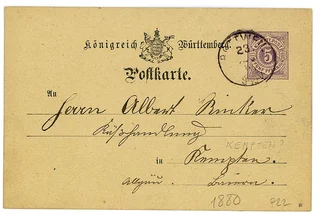 Königreich Württemberg.
Postkarte.
An
Herrn Albert Rinker
Käßhandlung
KEMPTEN?
in Kempten.
Allgäu. Baiern.
1880 722
5